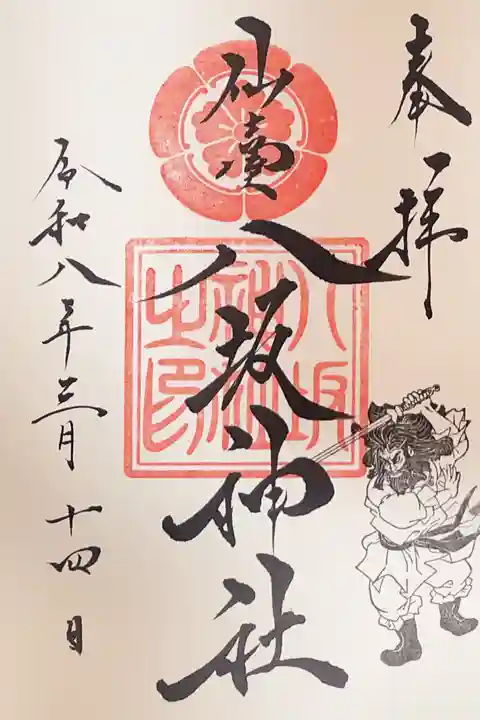 奉拝
八坂神社
八坂神社之印
令和八年三月十四日